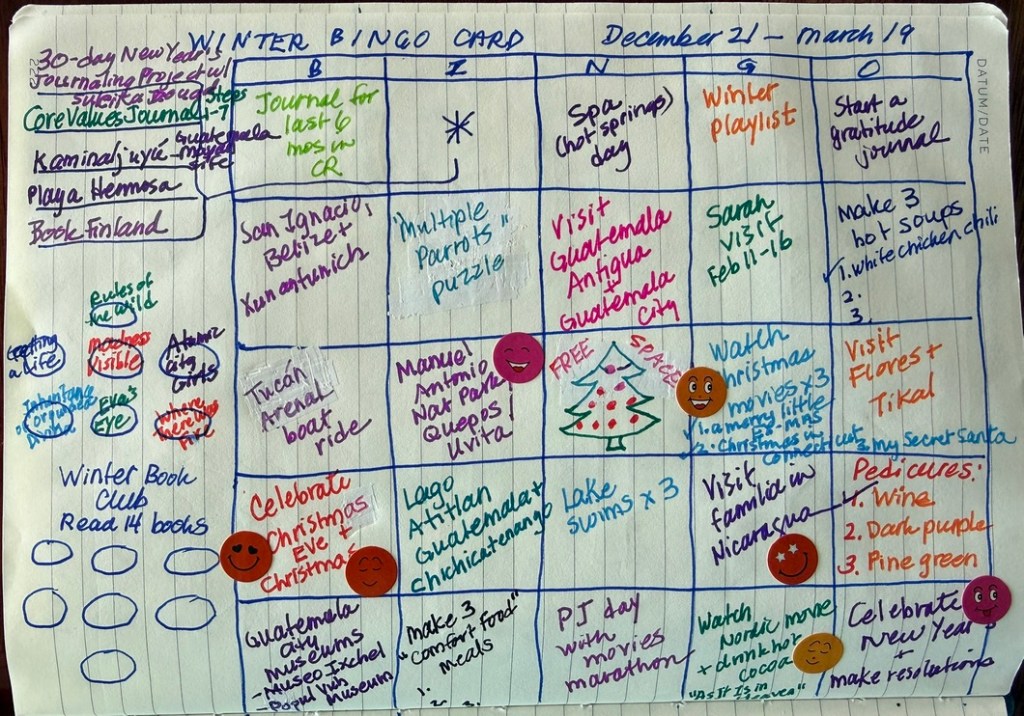 WINTER BINGO CARD December 21 - March 19
30-day New Year's
Journaling Project w/
Suleika Jaouad
Core Values Journal Steps 1-7
Kaminaljuyú - Guatemala
mayan
site
Playa Hermosa
Book Finland
DATUM/DATE
B I N G O
Journal for
last 6
mos in
CR
*
Spa
(hot springs)
day
Winter
playlist
Start a
gratitude
journal
San Ignacio,
Belize +
Xunantunich
"Multiple
Parrots"
puzzle
Visit
Guatemala
Antigua
+
Guatemala
City
Sarah
visit
Feb 11-16
Make 3
hot soups
✓ 1. white chicken chili
2.
3.
Tucán
Arenal
boat
ride
Manuel
Antonio
Nat Park
Quepos/
Uvita
FREE SPACE
Watch
Christmas
movies x3
✓ 1. a merry little
✓ 2. Christmas in
Connecticut
3. My Secret Santa
Visit
Flores +
Tikal
Celebrate
Christmas
Eve +
Christmas
Lago
Atitlan
Guatemala +
Chichicatenango
Lake
swims x 3
Visit
familia in
Nicaragua
Pedicures:
✓ 1. Wine
2. Dark purple
3. Pine green
Guatemala
city
museums
- Museo Ixchel
- Popol Vuh
Museum
make 3
"comfort food"
meals
1.
2. 3.
PJ day
with
movies
marathon
Watch
Nordic movie
+ drink hot
cocoa
"As It Is in
Heaven"
Celebrate
New Year
+
make resolutions
Rules of
the Wild
Getting
a Life
Madness
Visible
Atomic
City
Girls
Eva's
Eye
Where
There Was
Fire
Winter Book
Club
Read 14 books